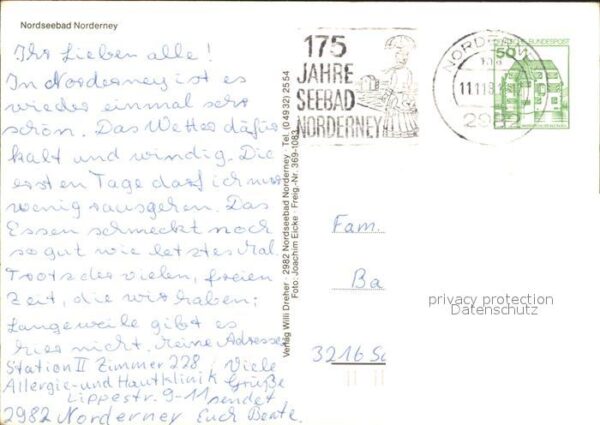 Nordseebad Norderney
Ihr Lieben alle!
In Norderney ist es
wieder einmal sehr
schön. Das Wetter dafür
kalt und windig. Die
ersten Tage darf ich nur
wenig rausgehen. Das
Essen schmeckt noch
so gut wie letztes Mal.
Trotz der vielen, freien
Zeit, die wir haben;
Langeweile gibt es
hier nicht. Meine Adresse:
Station II Zimmer 228
Allergie- und Hautklinik
Lippestr. 9-11
2982 Norderney
Viele
Grüße
sendet
Euch Beate.
Verlag Willi Dreher · 2982 Nordseebad Norderney · Tel. (0 49 32) 25 54
Foto: Joachim Eicke · Freig.-Nr. 369-1083
175
JAHRE
SEEBAD
NORDERNEY
NORDERN
11.11.8
2982
50
BUNDESPOST
Fam.
Ba
3216 Sa
privacy protection
Datenschutz